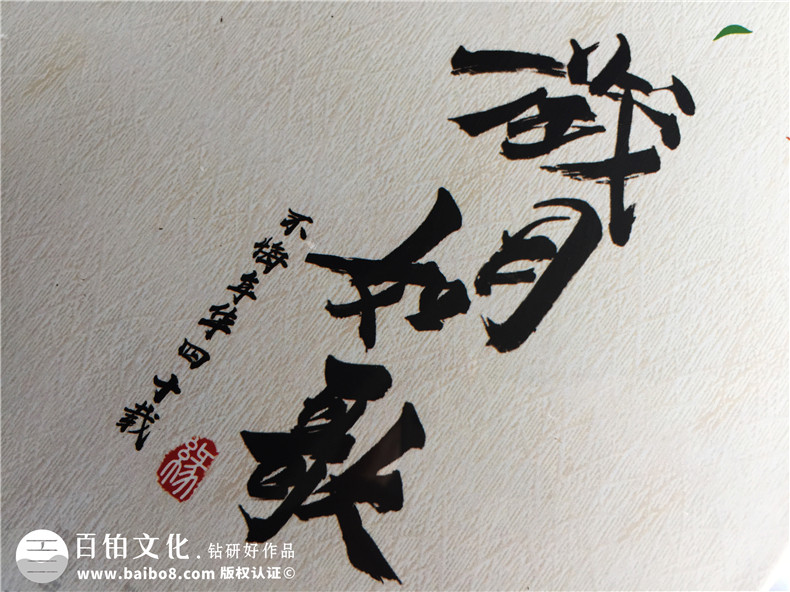 歲月如歌
不悔年华四十载
緣
百铂文化.钻研好作品
www.baibo8.com 版权认证©